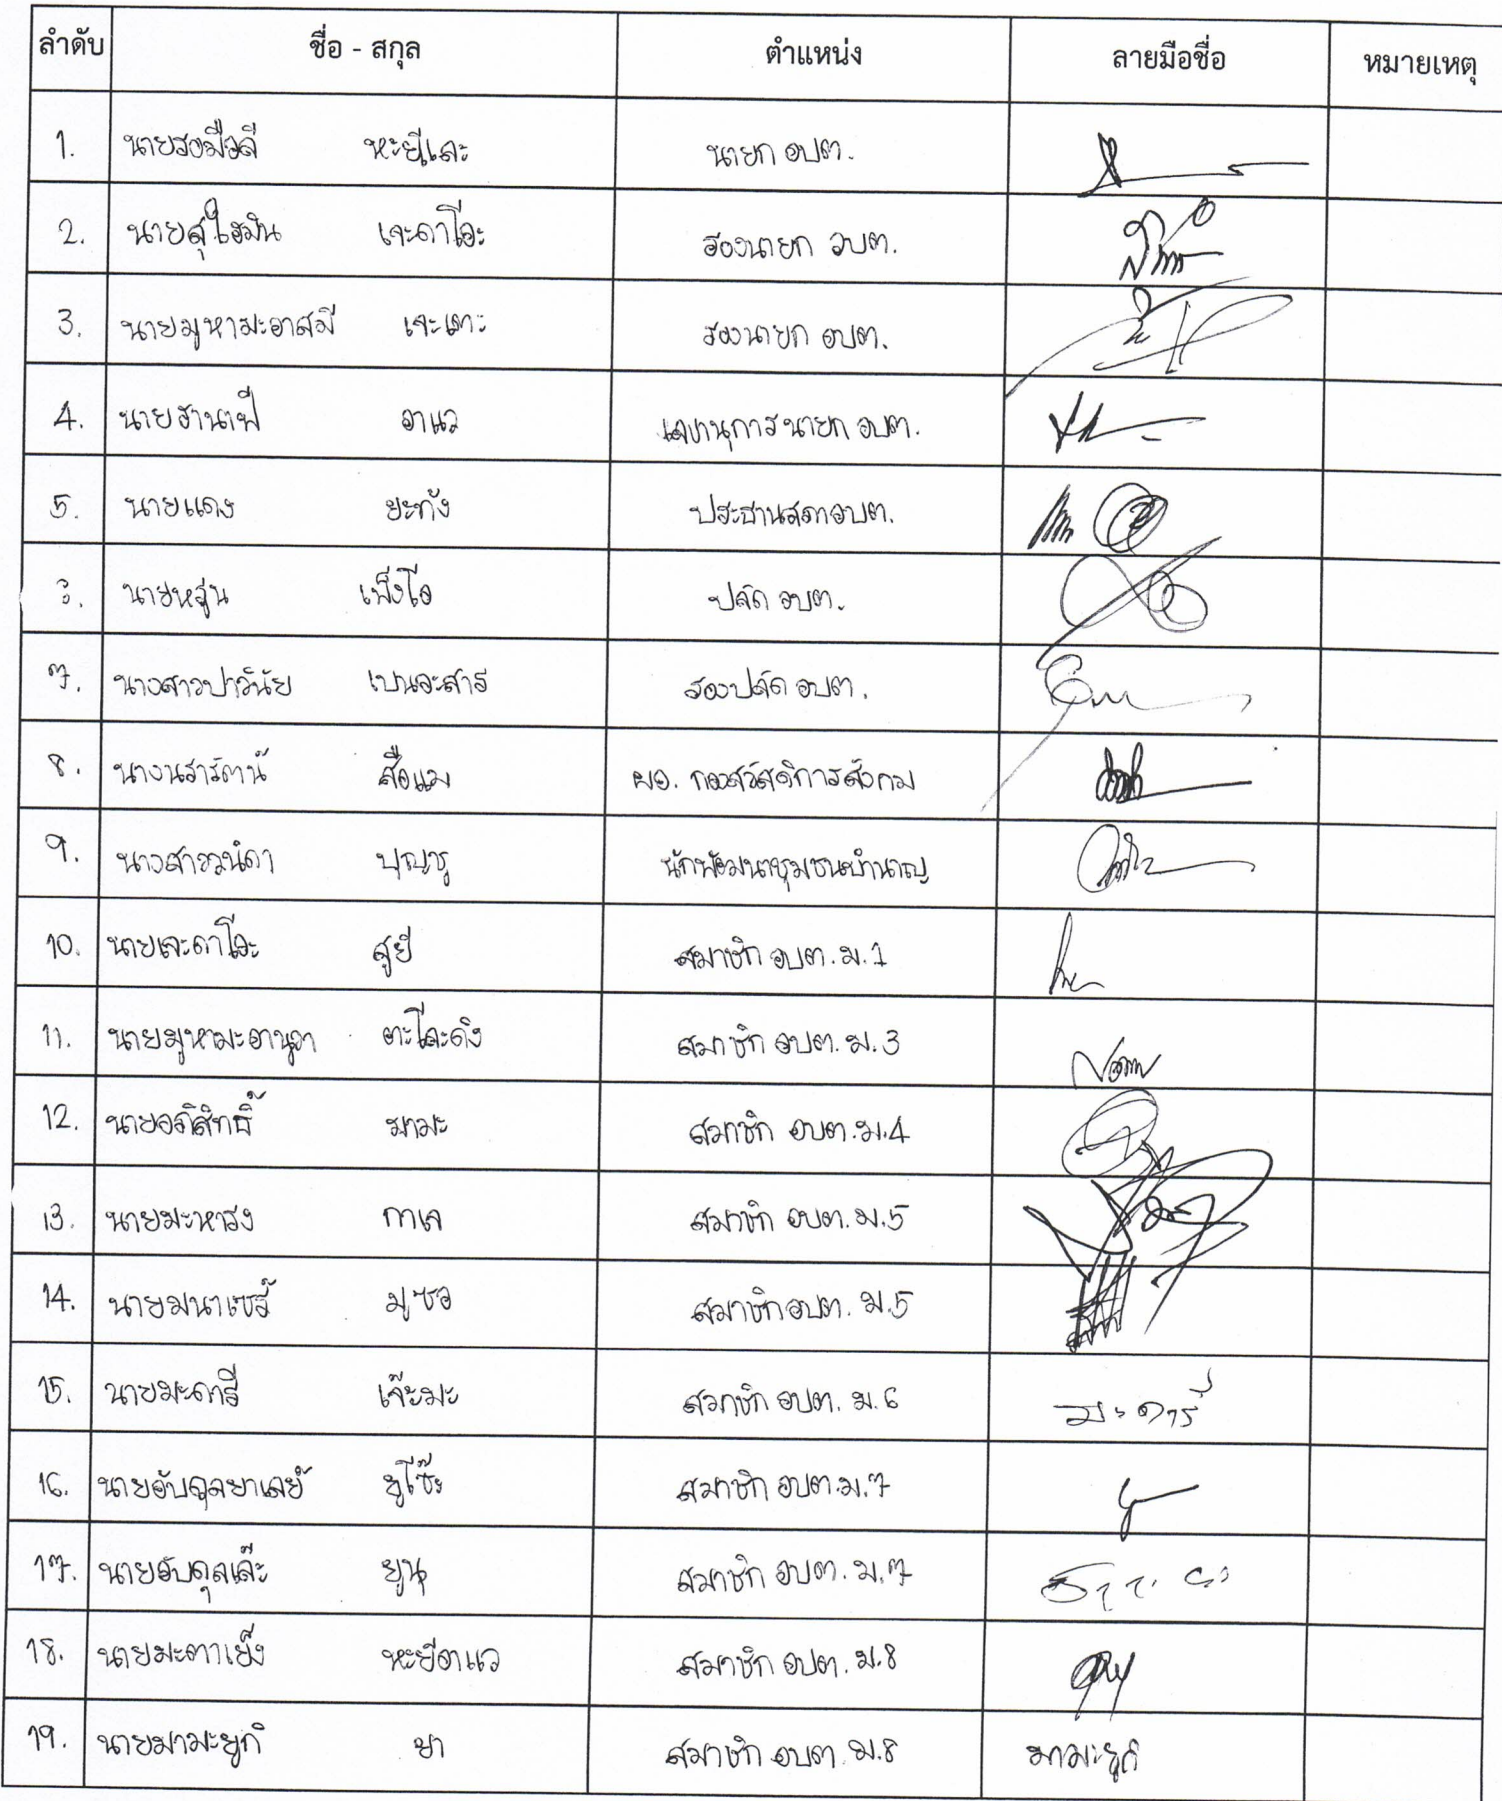 ลำดับ ชื่อ - สกุล ตำแหน่ง ลายมือชื่อ หมายเหตุ
1. นายรอมือลี หะยีและ นายก อบต.
2. นายสุไฮมิน เจะดาโอะ รองนายก อบต.
3. นายมูหามะอาสมี เจะเตะ รองนายก อบต.
4. นายฮานาฟี อาแว เลขานุการนายก อบต.
5. นายแดง ยะทัง ประธานสภาอบต.
นายหรุ่น เพ็งโอ ปลัด อบต.
7. นางสาวปาวันัย เบนอะสาร รองปลัด อบต.
8. นางนรารัตน์ สือแม ผอ. กองสวัสดิการสังคม
9. นางสาววนิดา บุญชู นักพัฒนาชุมชนชำนาญ
10. นายเจะดาโอะ สูยี สมาชิก อบต. ม.1
11. นายมูหามะอานูวา ตะโละดิง สมาชิก อบต. ม.3
12. นายอภิสิทธิ์ มามะ สมาชิก อบต.ม.4
13. นายมะหารง กาเล สมาชิก อบต. ม.5
14. นายมนาเซร์ มูซอ สมาชิกอบต. ม.5
15. นายมะดารี เจ๊ะมะ สมาชิก อบต. ม.6 มะดารี
16. นายอับดุลยาเลย์ ยูโซ๊ะ สมาชิก อบต.ม.7
17. นายอับดุลเล๊าะ ยูนุ สมาชิก อบต. ม.7
18. นายมะตาเย็ง หะยีอาแว สมาชิก อบต. ม.8
19. นายมามะยูกี ยา สมาชิก อบต. ม.8 มามะยูกี